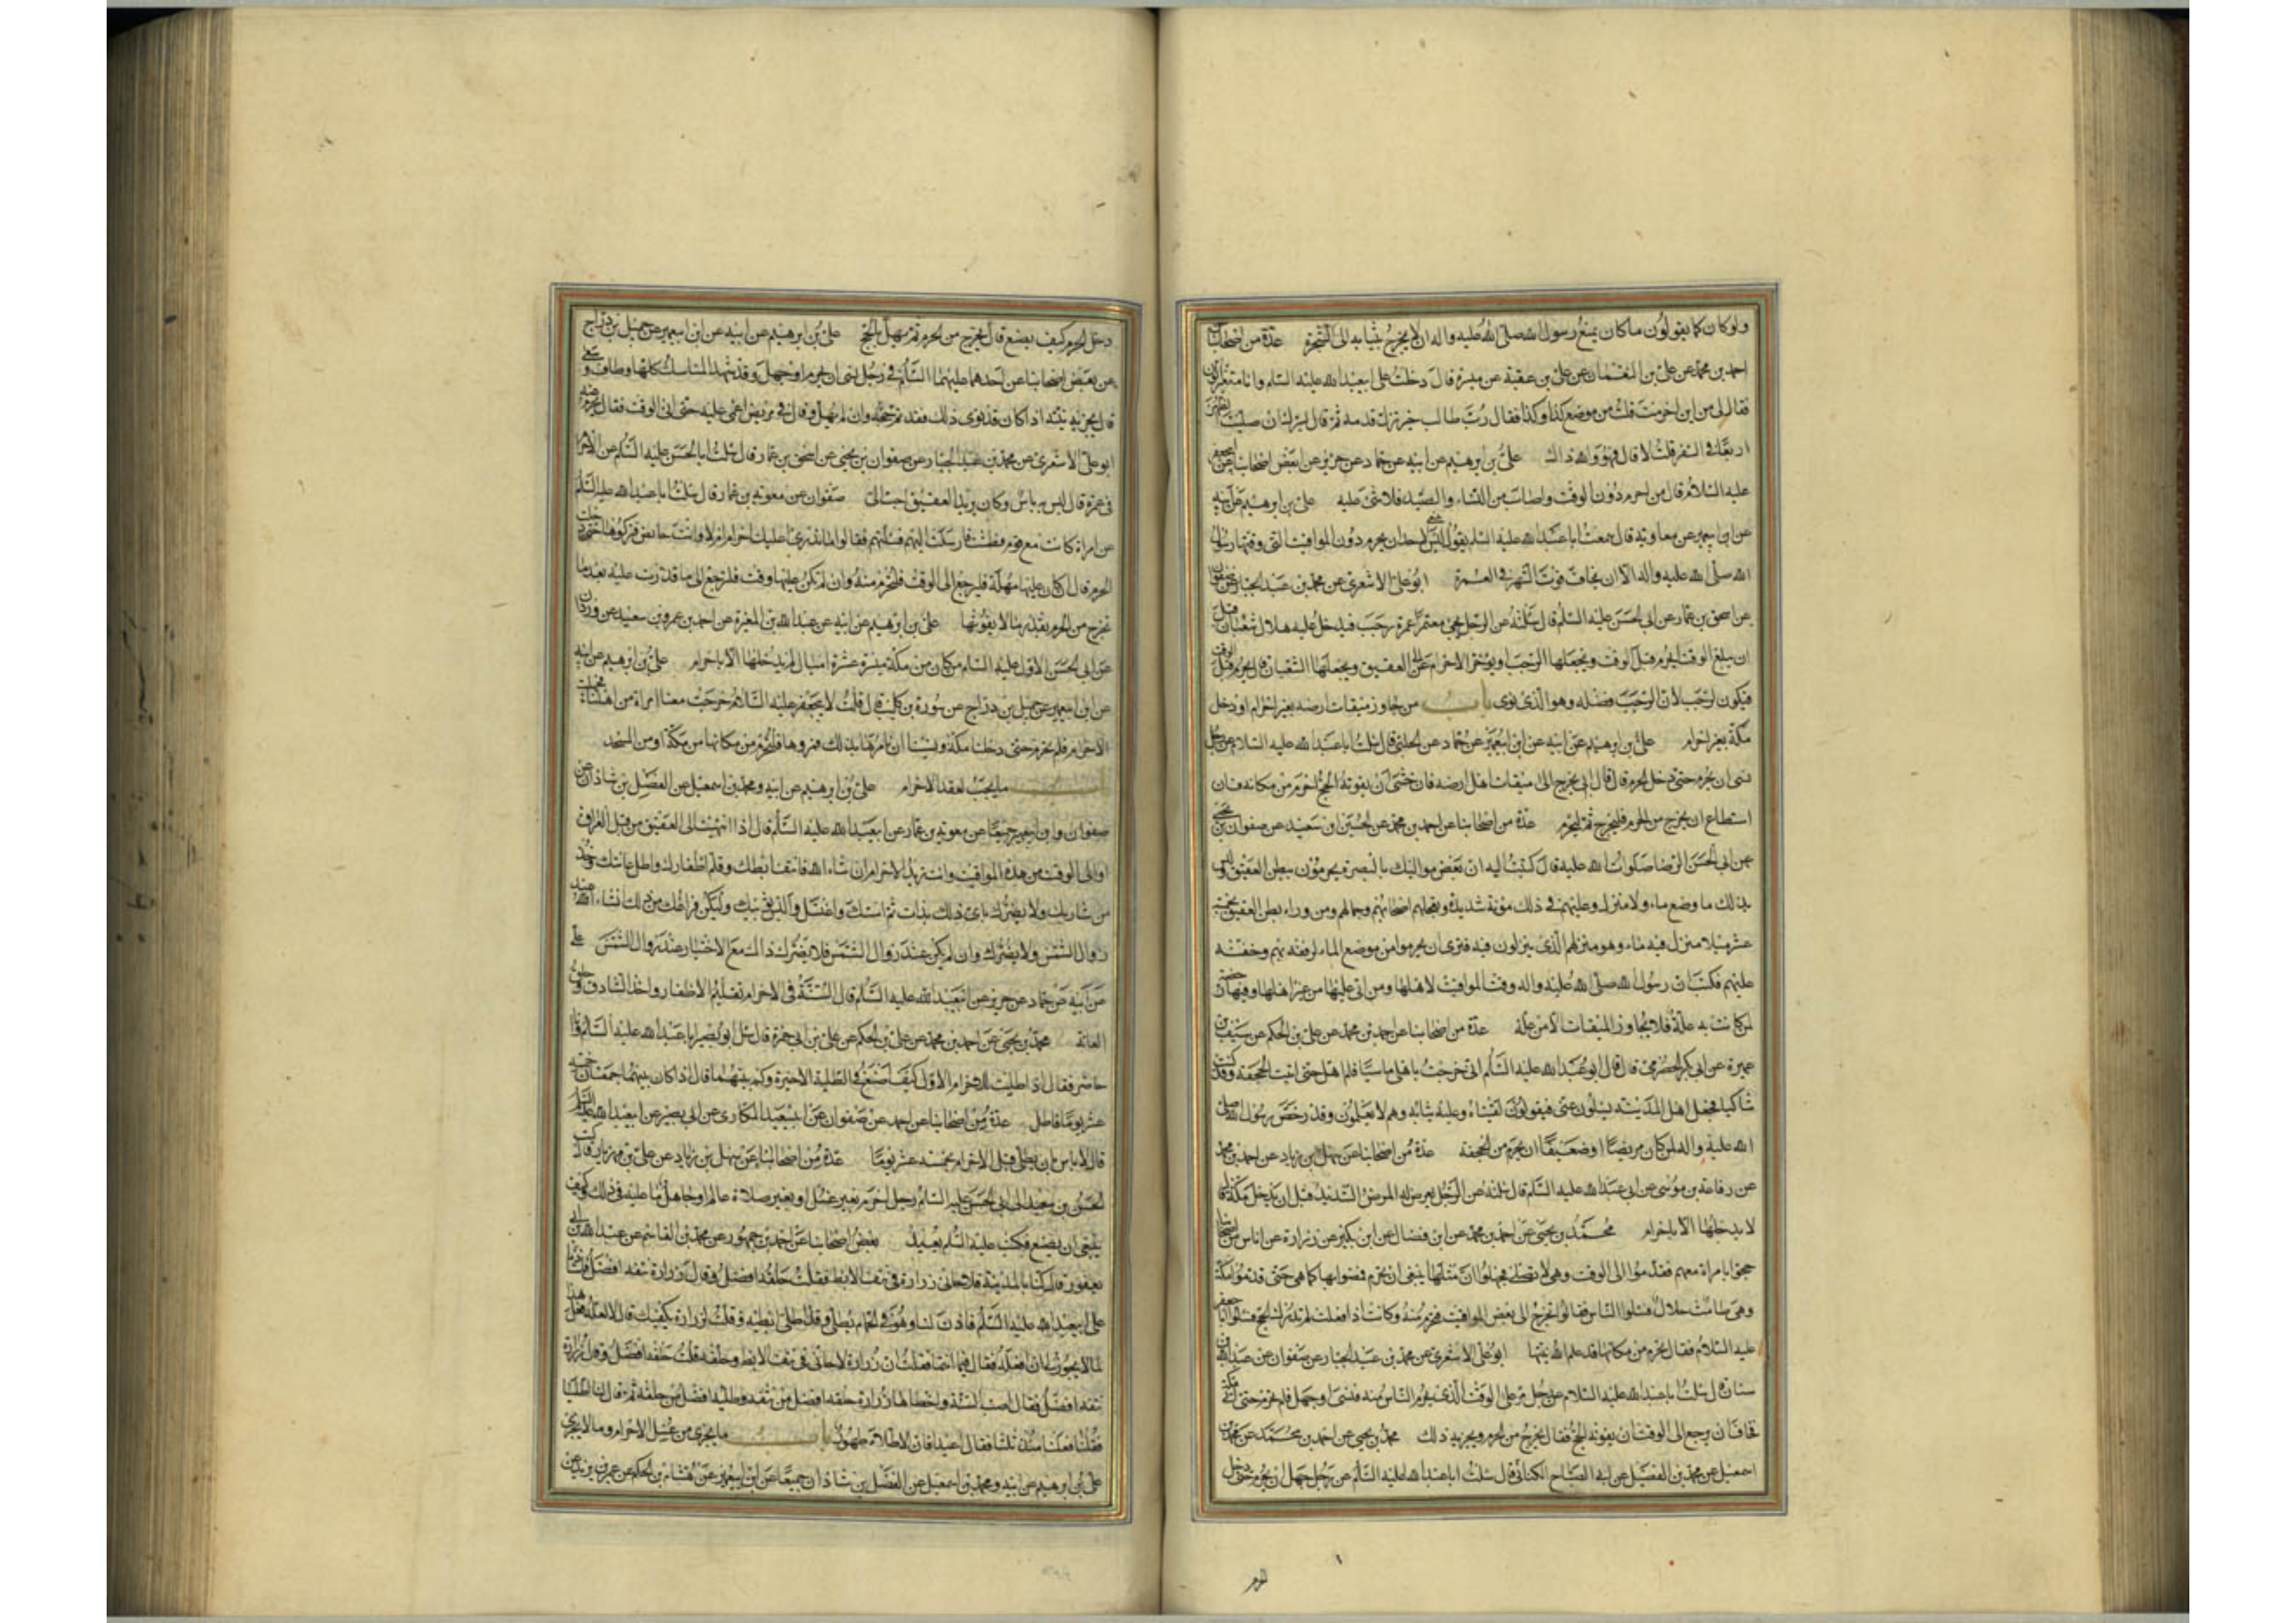 ولوكان كما يقولون ما كان يمنع رسول الله صلى الله عليه واله ان لا يخرج بثيابه الى الشجرة عدة من اصحابنا
احمد بن محمد عن علي بن النعمان عن علي بن عقبة عن ميسرة قال دخلت على ابيعبدالله عليه السلام وانا متغير اللون
فقال لى من اين احرمت قلت من موضع كذا وكذا فقال رب طالب خير تزل قدمه ثم قال ايسرك ان صليت الظهر
اربعا في السفر قلت لا قال فهو والله ذاك علي بن ابرهيم عن ابيه عن حماد عن حريز عن بعض اصحابنا عن ابيجعفر
عليه السلام قال من احرم دون الوقت واصاب من النساء والصيد فلا شئ عليه علي بن ابرهيم عن ابيه
عن ابن ابيعمير عن معاوية قال سمعت اباعبدالله عليه السلم يقول ليس ينبغي لاحد ان يحرم دون المواقيت التي وقتها رسول
الله صلى الله عليه واله الا ان يخاف فوت الشهر في العمرة ابو علي الاشعري عن محمد بن عبد الجبار عن صفوان
عن اسحق بن عمار عن ابي الحسن عليه السلم قال سئلته عن الرجل يجئ معتمرا عمرة رجب فيدخل عليه هلال شعبان قبل
ان يبلغ الوقت ايحرم قبل الوقت ويجعلها لرجب او يؤخر الاحرام الى العقيق ويجعلها لشعبان قال يحرم قبل الوقت
فيكون لرجب لان لرجب فضله وهو الذي نوى باب من جاوز ميقات ارضه بغير احرام او دخل
مكة بغير احرام علي بن ابرهيم عن ابيه عن ابن ابيعمير عن حماد عن الحلبي قال سئلت اباعبدالله عليه السلام عن رجل
نسى ان يحرم حتى دخل الحرم قال قال ابي يخرج الى ميقات اهل ارضه فان خشى ان يفوته الحج احرم من مكانه فان
استطاع ان يخرج من الحرم فليخرج ثم ليحرم عدة من اصحابنا عن احمد بن محمد عن الحسين بن سعيد عن صفوان بن يحيى
عن ابي الحسن الرضا صلوات الله عليه قال كتبت اليه ان بعض مواليك بالبصرة يحرمون ببطن العقيق وليس
بذلك الموضع ماء ولا منزل وعليهم في ذلك مؤنة شديدة ويعجلهم اصحابهم وجمالهم ومن وراء بطن العقيق بخمسة
عشر ميلا منزل فيه ماء وهو منزلهم الذي ينزلون فيه فترى ان يحرموا من موضع الماء لرفقه بهم وخفته
عليهم فكتب ان رسول الله صلى الله عليه واله وقت المواقيت لاهلها ومن اتى عليها من غير اهلها وفيها رخصة
لمن كانت به علة فلا يجاوز الميقات الا من علة عدة من اصحابنا عن احمد بن محمد عن علي بن الحكم عن سيف بن
عميرة عن ابي بكر الحضرمي قال قال ابو عبدالله عليه السلم انى خرجت باهلى ماشيا فلم اهل حتى اتيت الجحفة وقد كنت
شاكيا فجعل اهل المدينة يسئلون عني فيقولون لقيناه وعليه ثيابه وهم لا يعلمون وقد رخص رسول الله صلى
الله عليه واله لمن كان مريضا او ضعيفا ان يحرم من الجحفة عدة من اصحابنا عن سهل بن زياد عن احمد بن محمد
عن رفاعة بن موسى عن ابي عبدالله عليه السلم قال سئلته عن الرجل يعرض له المرض الشديد قبل ان يدخل مكة قال
لا يدخلها الا باحرام محمد بن يحيى عن احمد بن محمد عن ابن فضال عن ابن بكير عن زرارة عن اناس من اصحابنا
حجوا بامراة معهم فقدموا الى الوقت وهي لا تصلى فجهلوا ان مثلها ينبغي ان يحرم فمضوا بها كما هي حتى قدموا مكة
وهي طامث حلال فسئلوا الناس فقالوا تخرج الى بعض المواقيت فتحرم منه وكانت اذا فعلت لم تدرك الحج فسئلوا اباجعفر
عليه السلام فقال تحرم من مكانها قد علم الله نيتها ابو علي الاشعري عن محمد بن عبد الجبار عن صفوان عن عبدالله بن
سنان قال سئلت اباعبدالله عليه السلام عن رجل مر على الوقت الذي يحرم الناس منه فنسى او جهل فلم يحرم حتى اتى مكة
فخاف ان يرجع الى الوقت ان يفوته الحج فقال يخرج من الحرم ويحرم ويجزيه ذلك محمد بن يحيى عن احمد بن محمد عن محمد بن
اسمعيل عن محمد بن الفضيل عن ابي الصباح الكناني قال سئلت اباعبدالله عليه السلم عن رجل جهل ان يحرم حتى دخل
الحرم
دخل الحرم كيف يصنع قال يخرج من الحرم ثم يهل بالحج علي بن ابرهيم عن ابيه عن ابن ابيعمير عن جميل بن دراج
عن بعض اصحابنا عن احدهما عليهما السلم في رجل نسى ان يحرم او جهل وقد شهد المناسك كلها وطاف وسعى
قال يجزيه نيته اذا كان قد نوى ذلك فقد تم حجه وان لم يهل وقال في مريض اغمى عليه حتى اتى الوقت فقال يحرم عنه
ابو علي الاشعري عن محمد بن عبد الجبار عن صفوان بن يحيى عن اسحق بن عمار قال سئلت ابا الحسن عليه السلم عن الاحرام
في غمرة قال ليس به باس وكان بريد العقيق احب الى صفوان عن معوية بن عمار قال سئلت اباعبدالله عليه السلم
عن امراة كانت مع قوم فطمثت فارسلت اليهم فسئلتهم فقالوا ما ندري اعليك احرام ام لا وانت حائض فتركوها حتى دخلت
الحرم قال ان كان عليها مهلة فليرجع الى الوقت فلتحرم منه وان لم تكن عليها وقت فلترجع الى ما قدرت عليه بعدما
تخرج من الحرم بقدر ما لا يفوتها علي بن ابرهيم عن ابيه عن عبدالله بن المغيرة عن احمد بن عمرو بن سعيد عن وردان
عن ابي الحسن الاول عليه السلم من كان من مكة مسيرة عشرة اميال لم يدخلها الا باحرام علي بن ابرهيم عن ابيه
عن ابن ابيعمير عن جميل بن دراج عن سورة بن كليب قال قلت لابيجعفر عليه السلام خرجت معنا امراة من اهلنا فجهلت
الاحرام فلم تحرم حتى دخلنا مكة ونسينا ان نامرها بذلك فمروها فلتحرم من مكانها من مكة او من المسجد
باب ما يجب لعقد الاحرام علي بن ابرهيم عن ابيه ومحمد بن اسمعيل عن الفضل بن شاذان عن
صفوان وابن ابيعمير جميعا عن معوية بن عمار عن ابيعبدالله عليه السلم قال اذا انتهيت الى العقيق من قبل العراق
او الى الوقت من هذه المواقيت وانت تريد الاحرام ان شاء الله فانتف ابطك وقلم اظفارك واطل عانتك وخذ
من شاربك ولا يضرك باى ذلك بدات ثم استك واغتسل والبس ثوبيك وليكن فراغك من ذلك انشاء الله عند
زوال الشمس ولا يضرك وان لم يكن عند زوال الشمس فلا يضرك ذاك مع الاختيار عند زوال الشمس علي
عن ابيه عن حماد عن حريز عن ابيعبدالله عليه السلم قال السنة في الاحرام تقليم الاظفار واخذ الشارب وحلق
العانة محمد بن يحيى عن احمد بن محمد عن علي بن الحكم عن علي بن ابي حمزة قال سئل ابو بصير اباعبدالله عليه السلم وانا
حاضر فقال اذا طليت للاحرام الاول كيف اصنع في الطلية الاخيرة وكم بينهما قال اذا كان بينهما جمعتان خمسة
عشر يوما فاطل عدة من اصحابنا عن احمد عن صفوان عن ابيسعيد المكاري عن ابي بصير عن ابيعبدالله عليه السلم
قال لا باس بان يطلى قبل الاحرام بخمسة عشر يوما عدة من اصحابنا عن سهل بن زياد عن علي بن مهزيار قال كتب
الحسن بن سعيد الى ابي الحسن عليه السلم رجل احرم بغير غسل او بغير صلاة عالم او جاهل ما عليه في ذلك وكيف
ينبغي ان يصنع فكتب عليه السلم يعيد بعض اصحابنا عن احمد بن جمهور عن محمد بن القاسم عن عبدالله بن ابي
يعفور قال كنا بالمدينة فلاحاني زرارة في نتف الابط فقلت حلقه افضل وقال زرارة نتفه افضل فاستاذنا
على ابيعبدالله عليه السلم فاذن لنا وهو في الحمام يطلى وقد اطلى ابطيه فقلت لزرارة يكفيك قال لا لعله فعل هذا
لما لا يجوز لى ان افعله فقال فيما انتما فقلت ان زرارة لاحاني في نتف الابط وحلقه قلت حلقه افضل وقال زرارة
نتفه افضل فقال اصبت السنة واخطاها زرارة حلقه افضل من نتفه وطليه افضل من حلقه ثم قال لنا اطليا
فقلنا فعلنا منذ ثلث فقال اعيدا فان الاطلاء طهور باب ما يجزى من غسل الاحرام وما لا يجزى
علي بن ابرهيم عن ابيه ومحمد بن اسمعيل عن الفضل بن شاذان جميعا عن ابن ابيعمير عن هشام بن الحكم عن عمر بن يزيد عن